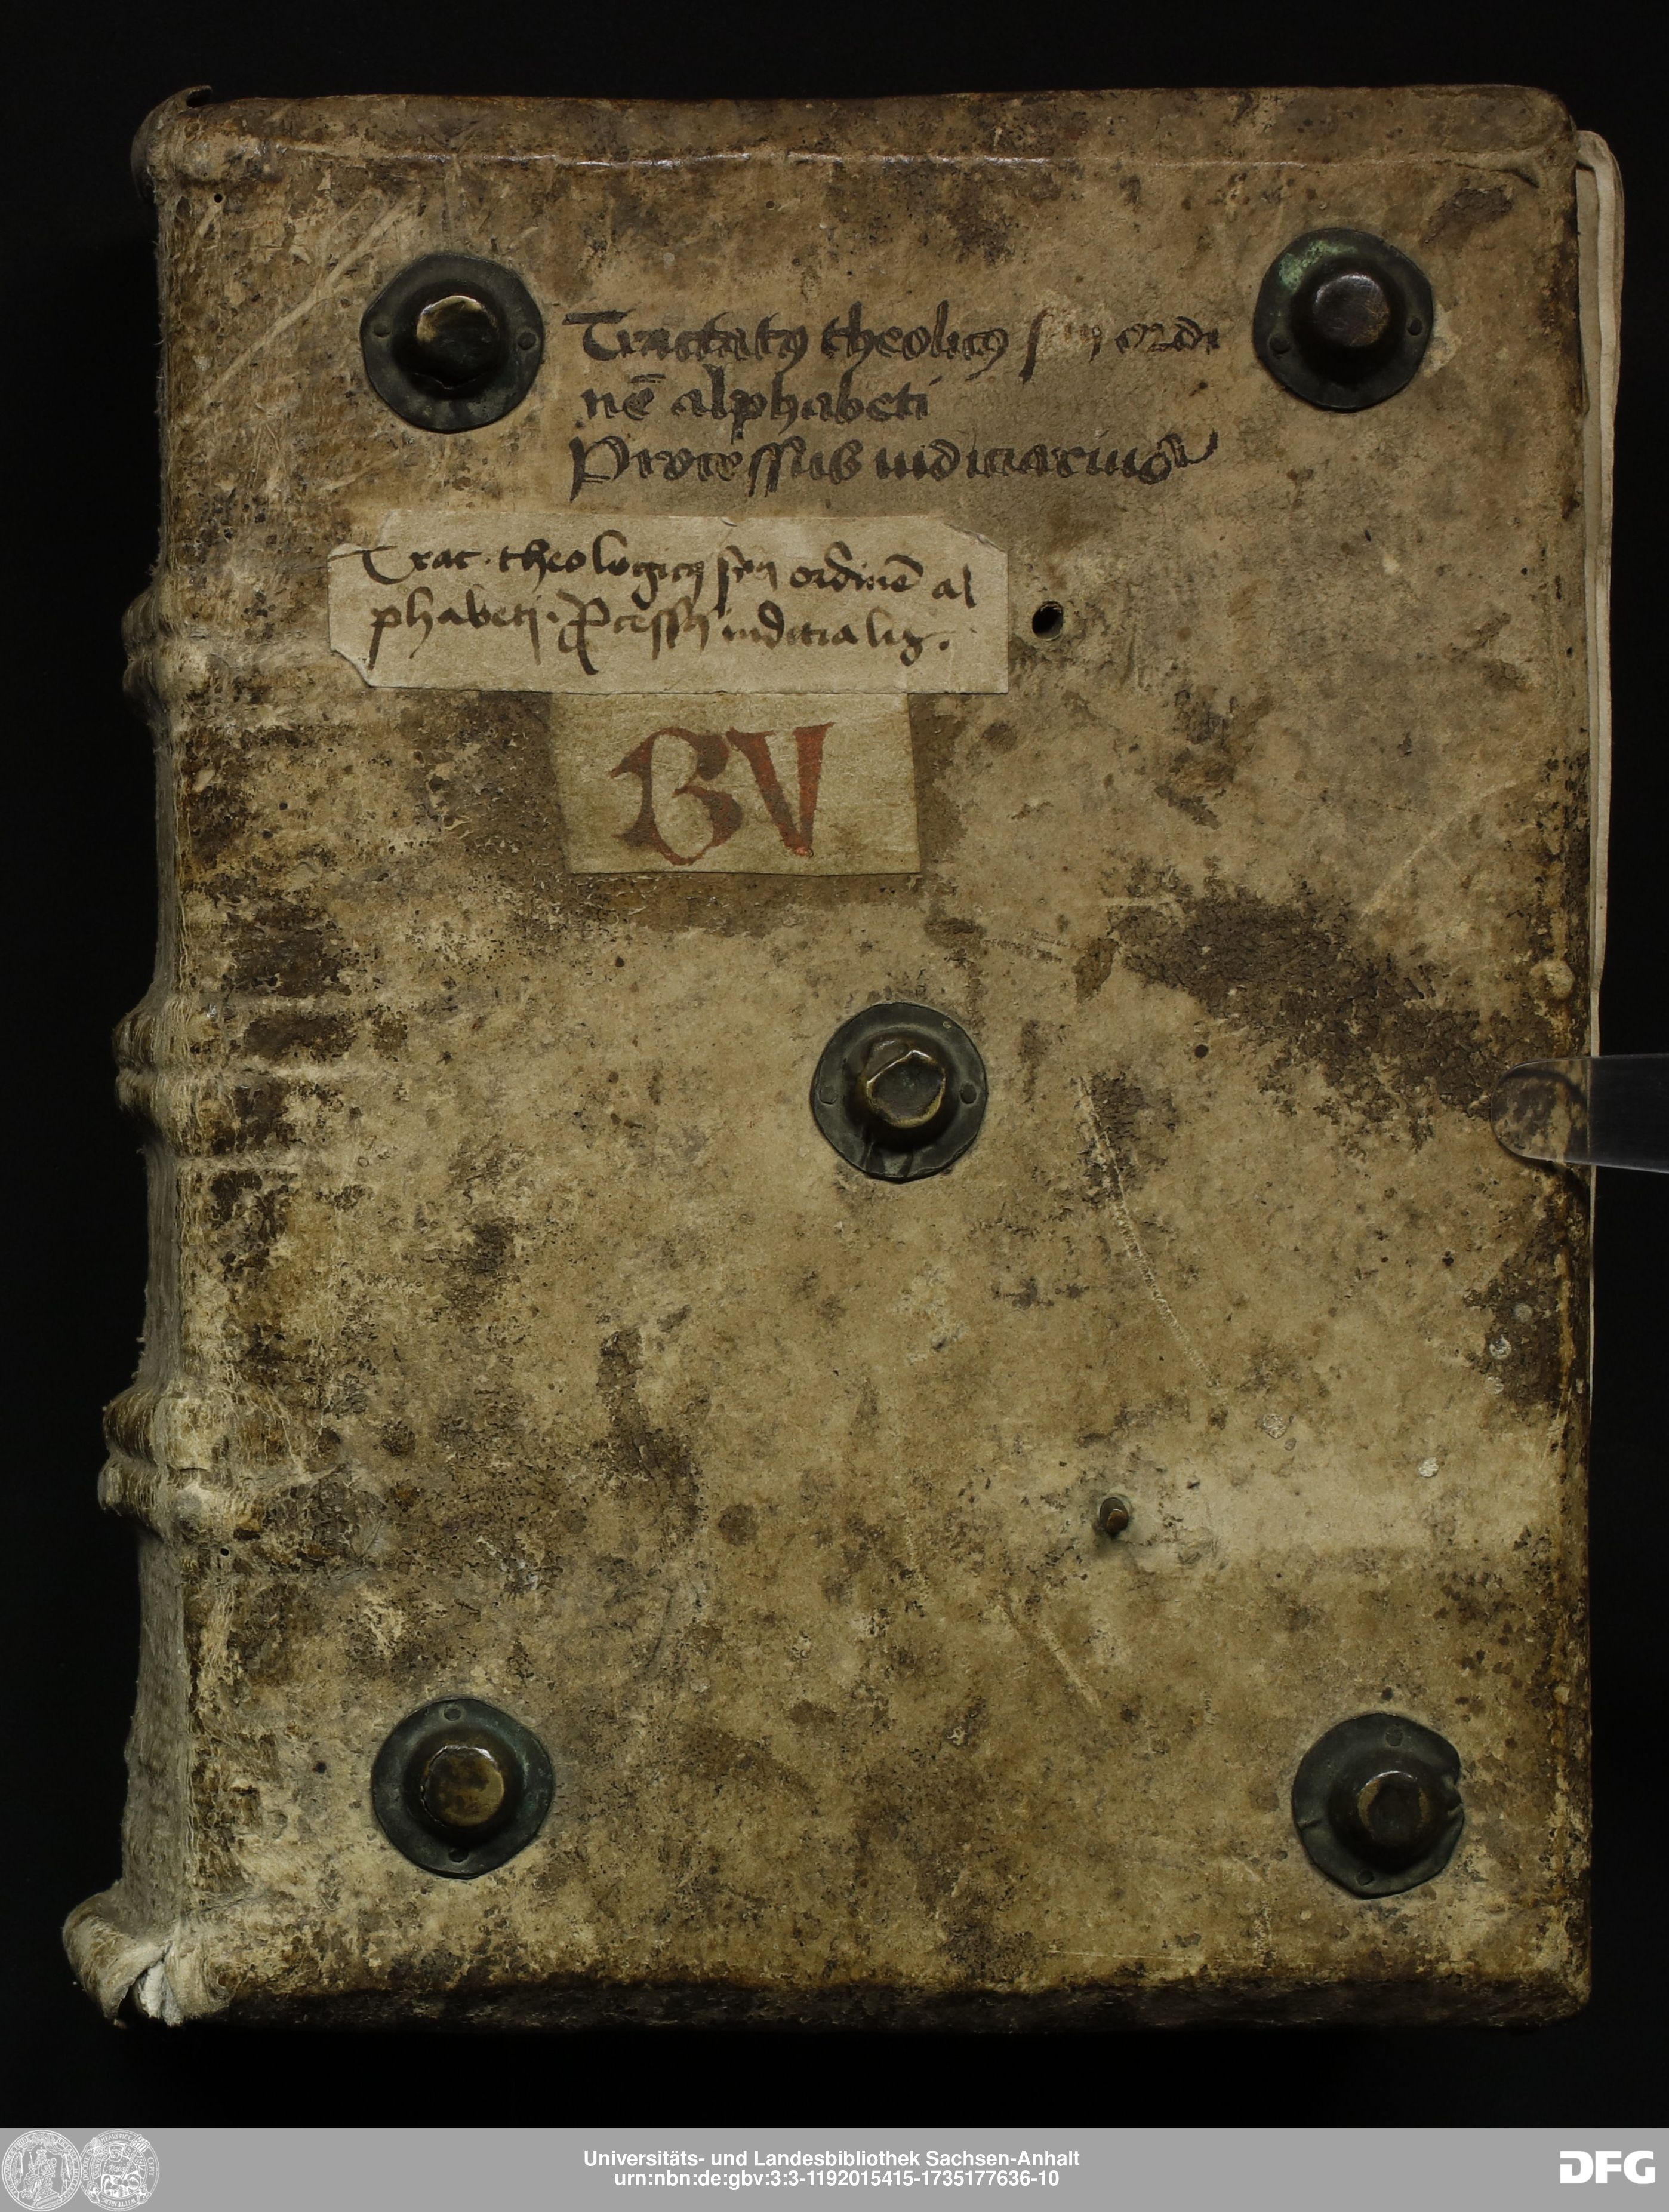 Tractatꝰ theolicꝰ scꝺm ordi
nē alphabeti
Processus iudiciarius
Trac. theologicꝰ scꝺm ordinē al
phabeti. ꝓcessꝰ iudicialis.
BV
Universitäts- und Landesbibliothek Sachsen-Anhalt
urn:nbn:de:gbv:3:3-1192015415-1735177636-10
DFG